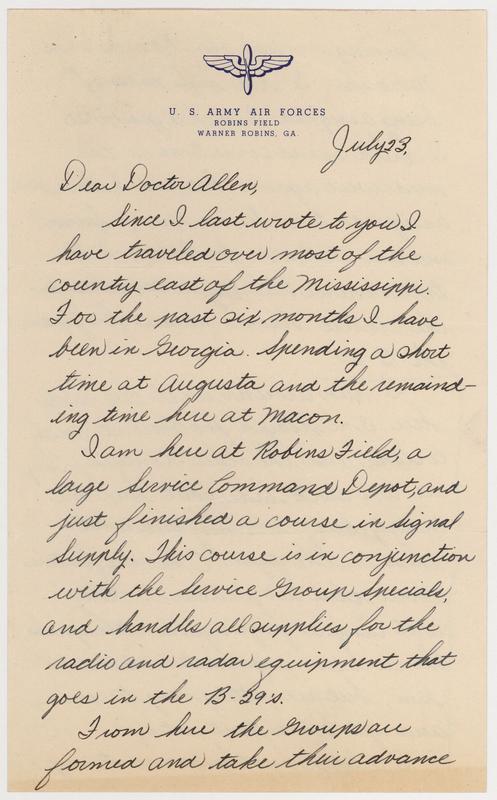 U. S. ARMY AIR FORCES
ROBINS FIELD
WARNER ROBINS, GA.
July 23,
Dear Doctor Allen,
Since I last wrote to you I
have traveled over most of the
country east of the Mississippi.
For the past six months I have
been in Georgia. Spending a short
time at Augusta and the remaind-
ing time here at Macon.
I am here at Robins Field, a
large Service Command Depot, and
just finished a course in Signal
Supply. This course is in conjunction
with the Service Group Specials,
and handles all supplies for the
radio and radar equipment that
goes in the B-29's.
From here the Groups are
formed and take their advance